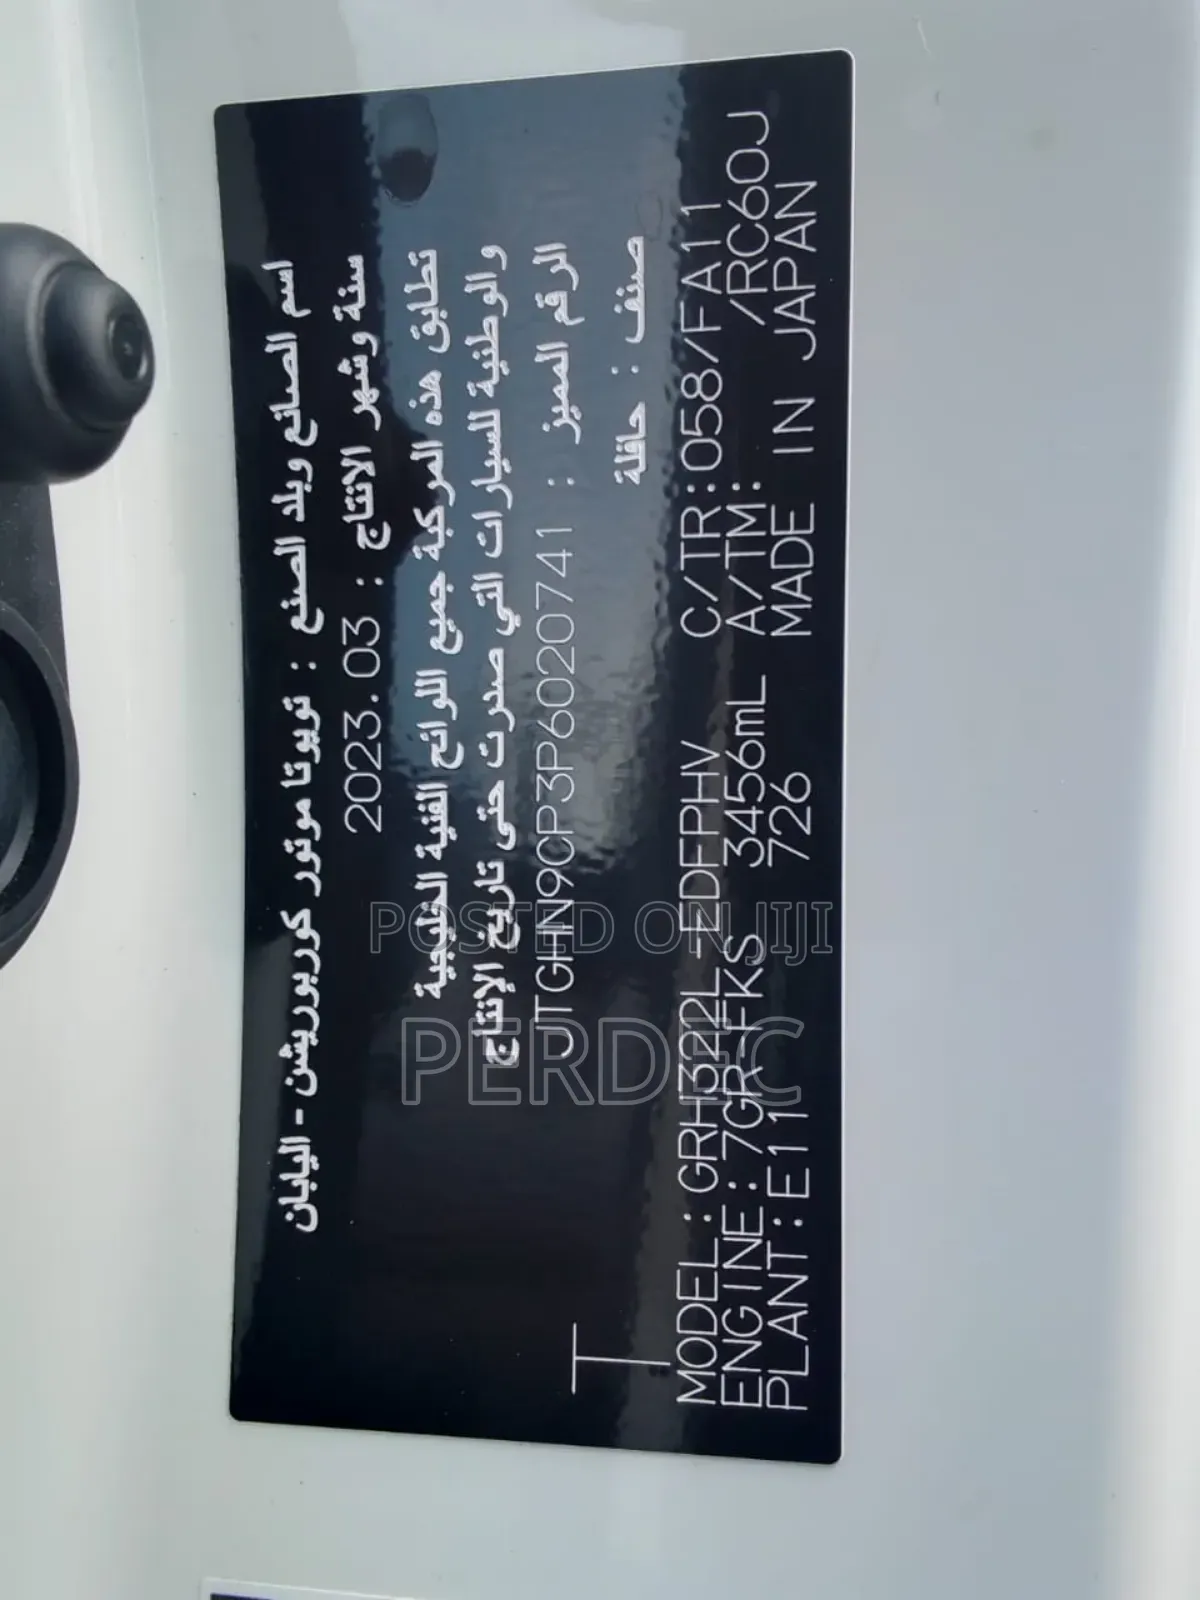 اسم الصانع وبلد الصنع : تويوتا موتور كوربوريشن - اليابان
سنة وشهر الانتاج : 2023.03
تطابق هذه المركبة جميع اللوائح الفنية الخليجية
والوطنية للسيارات التي صدرت حتى تاريخ الإنتاج
الرقم المميز : JTGHN9CP3P6020741
صنف : حافلة
T
MODEL:GRH322L-EDFPHV C/TR:058/FA11
ENGINE:7GR-FKS 3456mL A/TM: /RC60J
PLANT:E11 726 MADE IN JAPAN
POSTED ON JIJI
PERDEC